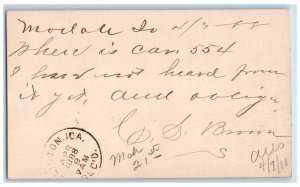 Modale Io 4/7-88
Where is car 554
I have not heard from
it yet, and oblige
C. S. Brown
TON, IOA.
APR
9
1888
REC'D.
Mch
21
ans
4/9/88